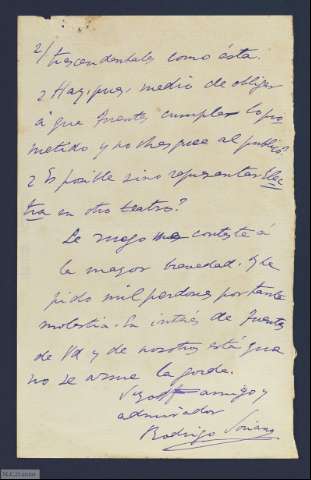 2/
trascendentales como ésta.
¿Hay, pues, medio de obligar
á que Fuentes cumpla lo pro
metido y no chasquee al público?
¿Es posible sino representar Elec
tra en otro teatro?
Le ruego me conteste á
la mayor brevedad. Y le
pido mil perdones por tanta
molestia. En interés de Fuentes
de Vd y de nosotros está que
no se arme la gorda.
Suyo amigo y
admirador
Rodrigo Soriano